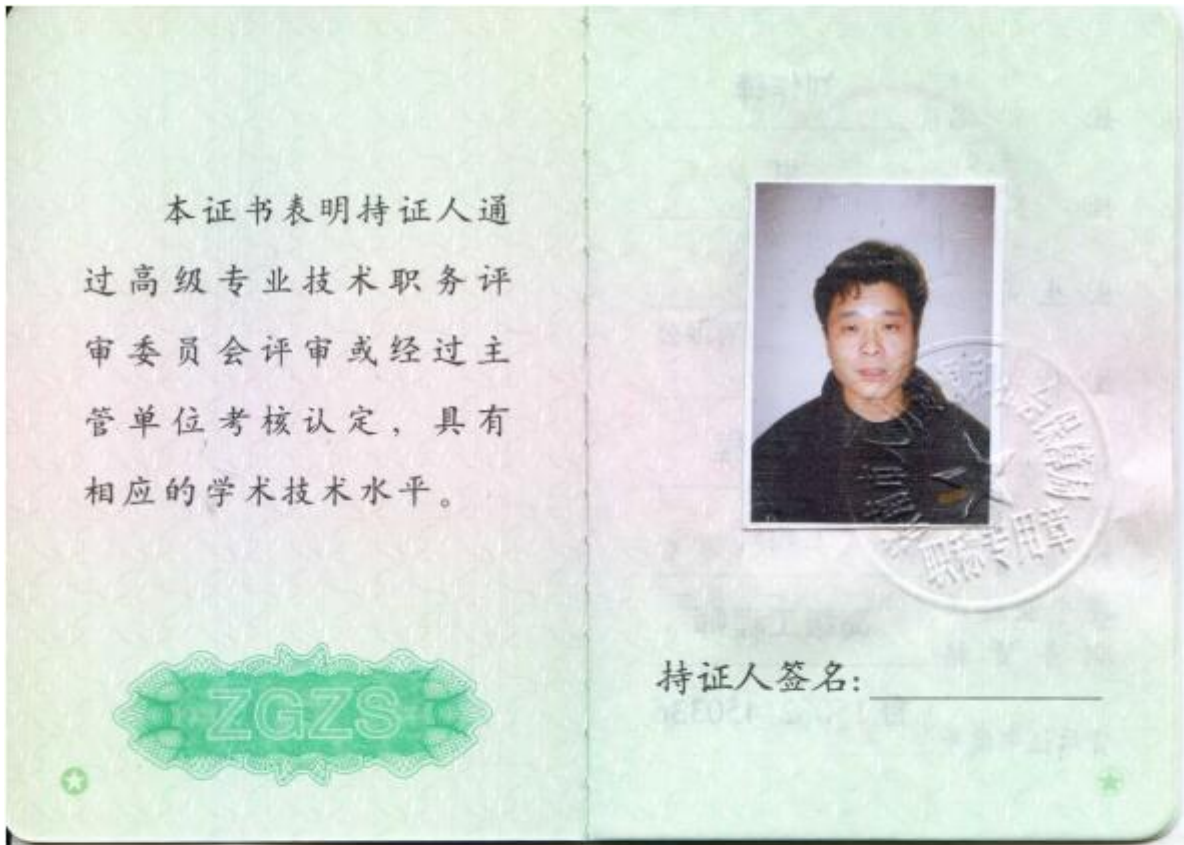 本证书表明持证人通
过高级专业技术职务评
审委员会评审或经过主
管单位考核认定，具有
相应的学术技术水平。
ZGZS
职称专用章
持证人签名: